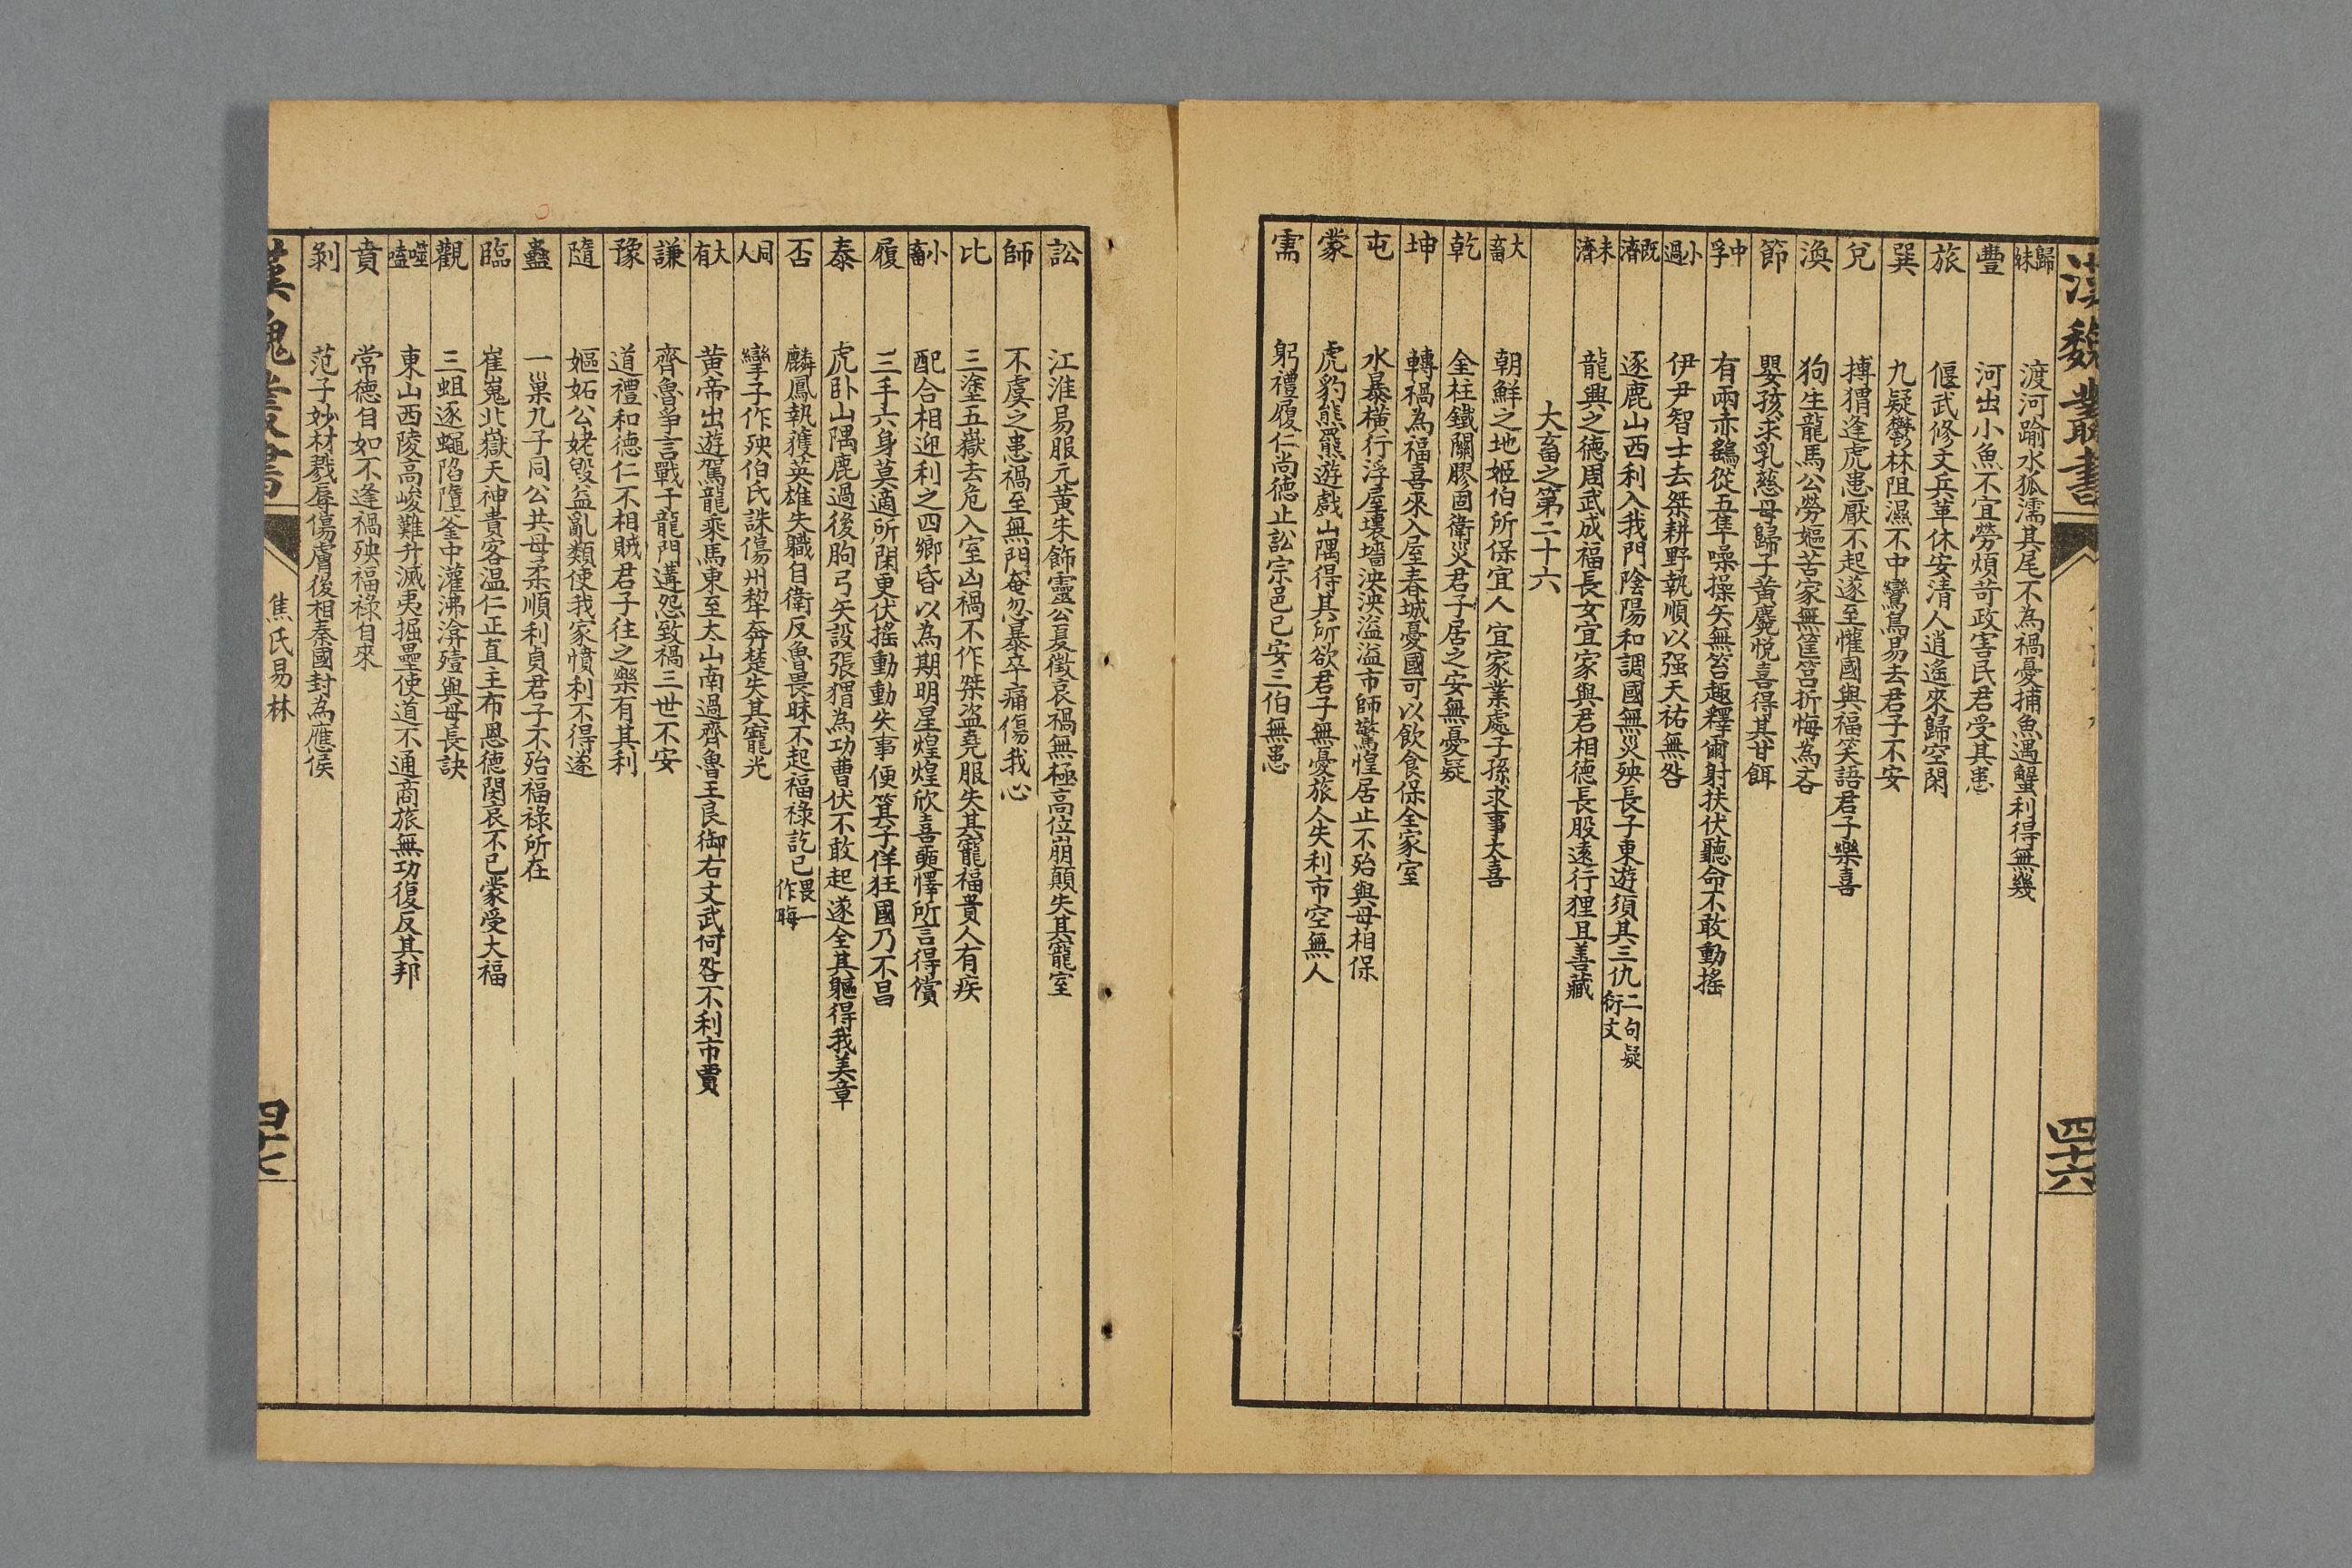 漢魏叢書
四十六
歸妹 渡河踰水狐濡其尾不為禍憂捕魚遇蟹利得無幾
豐 河出小魚不宜勞煩苛政害民君受其患
旅 偃武修文兵革休安清人逍遙來歸空閑
巽 九疑鬱林沮濕不中鸞鳥易去君子不安
兌 搏猬逢虎患厭不起遂至懽國與福笑語君子樂喜
渙 狗生龍馬公勞嫗苦家無筐筥折悔為吝
節 嬰孩求乳慈母歸子黃麑悅喜得其甘餌
中孚 有兩赤鷂從五隼噪操矢無笞趣釋爾射扶伏聽命不敢動搖
小過 伊尹智士去桀耕野執順以强天祐無咎
既濟 逐鹿山西利入我門陰陽和調國無災殃長子東遊須其三仇二句疑衍文
未濟 龍興之德周武成福長女宜家與君相德長股遠行狸且善藏
大畜之第二十六
大畜 朝鮮之地姬伯所保宜人宜家業處子孫求事大喜
乾 金柱鐵關膠固衛災君子居之安無憂疑
坤 轉禍為福喜來入屋春城憂國可以飲食保全家室
屯 水暴橫行浮屋壞墻泱泱溢溢市師驚惶居止不殆與母相保
蒙 虎豹熊羆遊戲山隅得其所欲君子無憂旅人失利市空無人
需 躬禮履仁尚德止訟宗邑已安三伯無患
訟 江淮易服元黃朱飾靈公夏徵哀禍無極高位崩顛失其寵室
師 不虞之患禍至無門奄忽暴卒痛傷我心
比 三塗五嶽去危入室凶禍不作桀盜堯服失其寵福貴人有疾
小畜 配合相迎利之四鄉昏以為期明星煌煌欣喜奭懌所言得償
履 三手六身莫適所閑更伏搖動動失事便箕子佯狂國乃不昌
泰 虎卧山隅鹿過後朐弓矢設張猬為功曹伏不敢起遂全其軀得我美草
否 麟鳳執獲英雄失職自衛反魯畏昧不起福祿訖已畏一作晦
同人 孿子作殃伯氏誅傷州犂奔楚失其寵光
大有 黃帝出遊駕龍乘馬東至太山南過齊魯王良御右文武何咎不利市賈
謙 齊魯爭言戰于龍門遘怨致禍三世不安
豫 道禮和德仁不相賊君子往之樂有其利
隨 嫗妬公姥毁益亂類使我家憤利不得遂
蠱 一巢九子同公共母柔順利貞君子不殆福祿所在
臨 崔嵬北嶽天神貴客温仁正直主布恩德閔哀不已蒙受大福
觀 三蛆逐蠅陷墮釜中灌沸渰殪與母長訣
噬嗑 東山西陵高峻難升滅夷掘壘使道不通商旅無功復反其邦
賁 常德自如不逢禍殃福祿自來
剝 范子妙材戮辱傷膚後相秦國封為應侯
漢魏叢書
焦氏易林
四十七